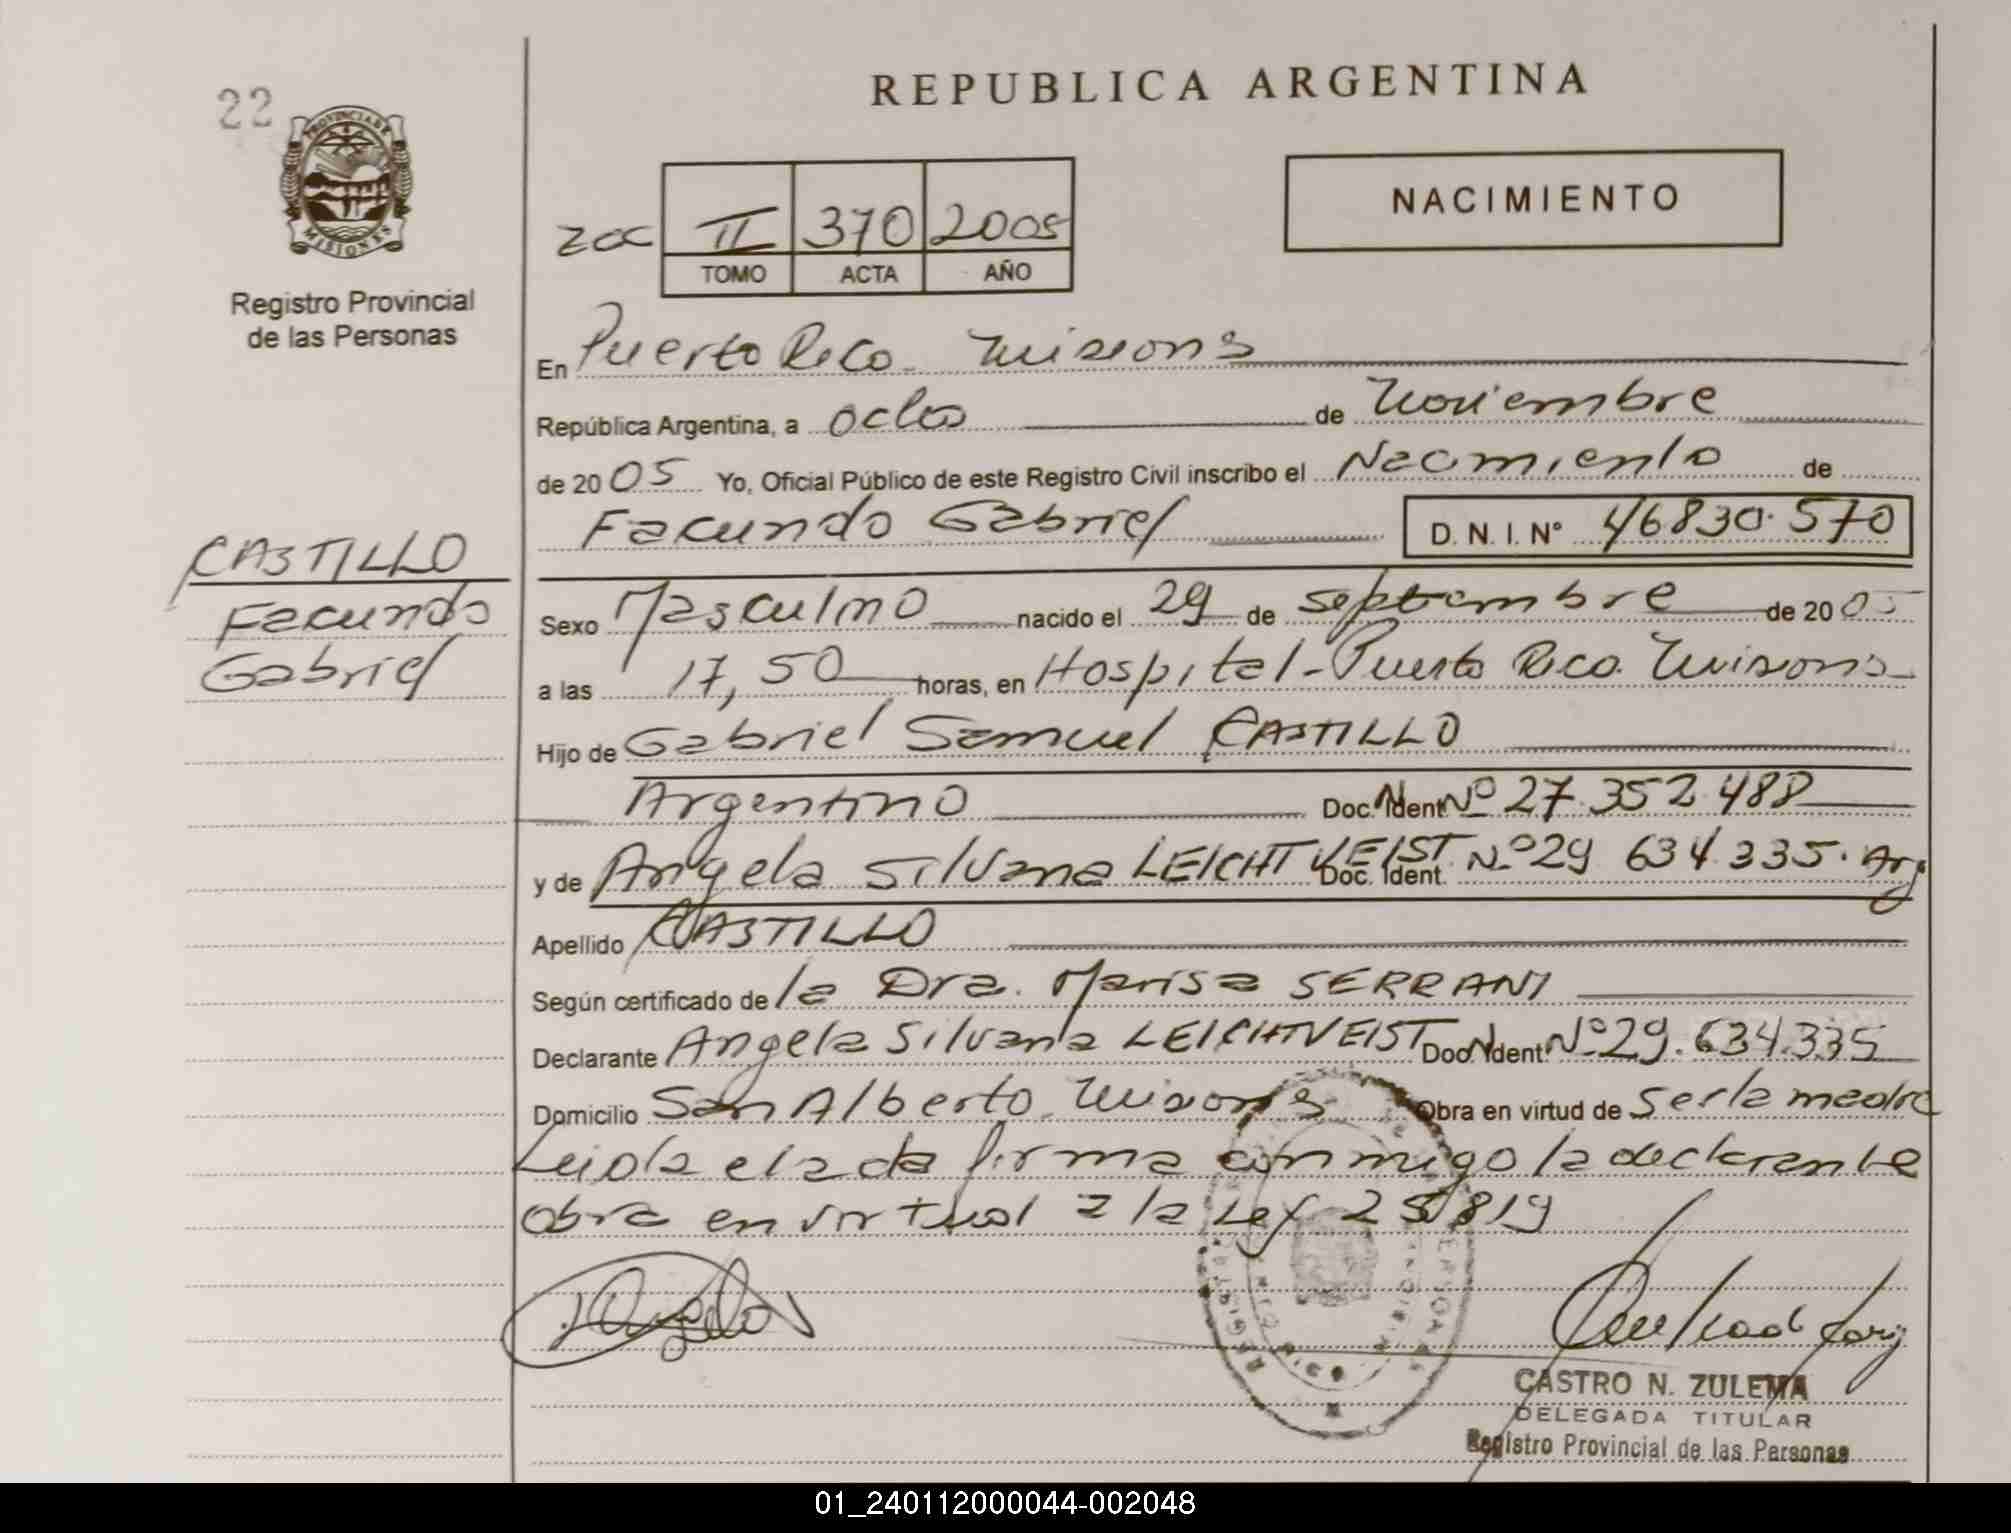 REPUBLICA ARGENTINA
22
PROVINCIA DE
MISIONES
Registro Provincial
de las Personas
NACIMIENTO
II 370 2005
TOMO ACTA AÑO
En Puerto Rico - Misiones
República Argentina, a ocho de Noviembre
de 2005 Yo, Oficial Público de este Registro Civil inscribo el Nacimiento de
Facundo Gabriel D. N. I. Nº 46830.570
CASTILLO
Facundo
Gabriel
Sexo Masculino nacido el 29 de septiembre de 2005
a las 17,50 horas, en Hospital - Puerto Rico. Misiones
Hijo de Gabriel Samuel CASTILLO
Argentino Doc. Ident. Nº 27.352.488
y de Angela Silvana LEICHTVEIST Doc. Ident. Nº 29 634.335. Arg
Apellido CASTILLO
Según certificado de la Dra. Marisa SERRANI
Declarante Angela Silvana LEICHTVEIST Doc. Ident. Nº 29.634.335
Domicilio San Alberto - Misiones Obra en virtud de ser la madre
Leida el acta firma conmigo la declarante
obra en virtud a la Ley 25819
CASTRO N. ZULEMA
DELEGADA TITULAR
Registro Provincial de las Personas
01_240112000044-002048